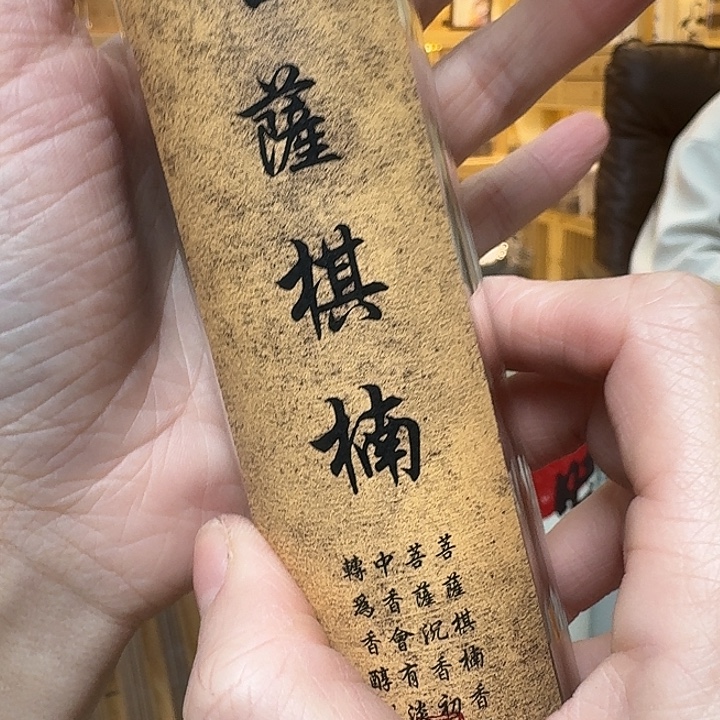 薩棋楠
菩薩棋楠香
菩薩沉香初
中香會有淡
轉為香醇